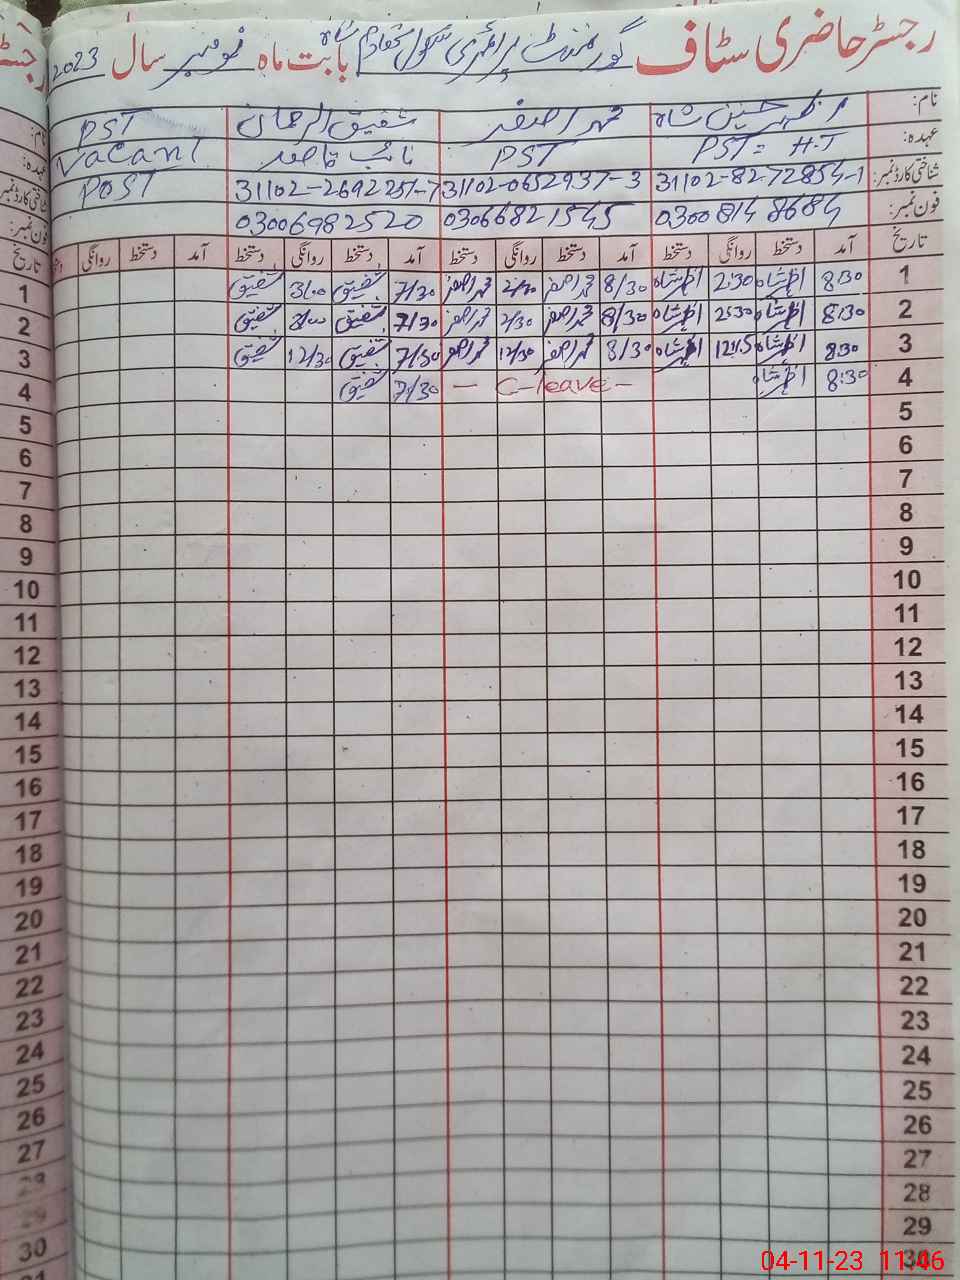 رجسٹر حاضری سٹاف گورنمنٹ پرائمری سکول شاہ بابت ماہ نومبر سال 2023
نام: اظہر حسنین شاہ محمد اصغر شفیق الرحمان PST
عہدہ: PST = H.T PST نائب قاصد Vacant
شناختی کارڈ نمبر: 31102-8272854-1 31102-0652937-3 31102-2692251-7 POST
فون نمبر: 0300814 8684 03066821545 03006982520
تاریخ آمد دستخط روانگی دستخط آمد دستخط روانگی دستخط آمد دستخط روانگی دستخط آمد دستخط روانگی تاریخ
1 8:30 اظہر شاہ 2:30 اظہر شاہ 8/30 محمد اصغر محمد اصغر 7/30 شفیق 3/00 شفیق 1
2 8:30 اظہر شاہ 2:30 اظہر شاہ 8/30 محمد اصغر 2/30 محمد اصغر 7/30 شفیق شفیق 2
3 8:30 اظہر شاہ اظہر شاہ 8/30 محمد اصغر 12/30 محمد اصغر 7/30 شفیق 12/30 شفیق 3
4 8:30 اظہر شاہ - C-leave - 7/30 شفیق 4
5 5
6 6
7 7
8 8
9 9
10 10
11 11
12 12
13 13
14 14
15 15
16 16
17 17
18 18
19 19
20 20
21 21
22 22
23 23
24 24
25 25
26 26
27 27
28 28
29 29
30 30
31
04-11-23 11:46